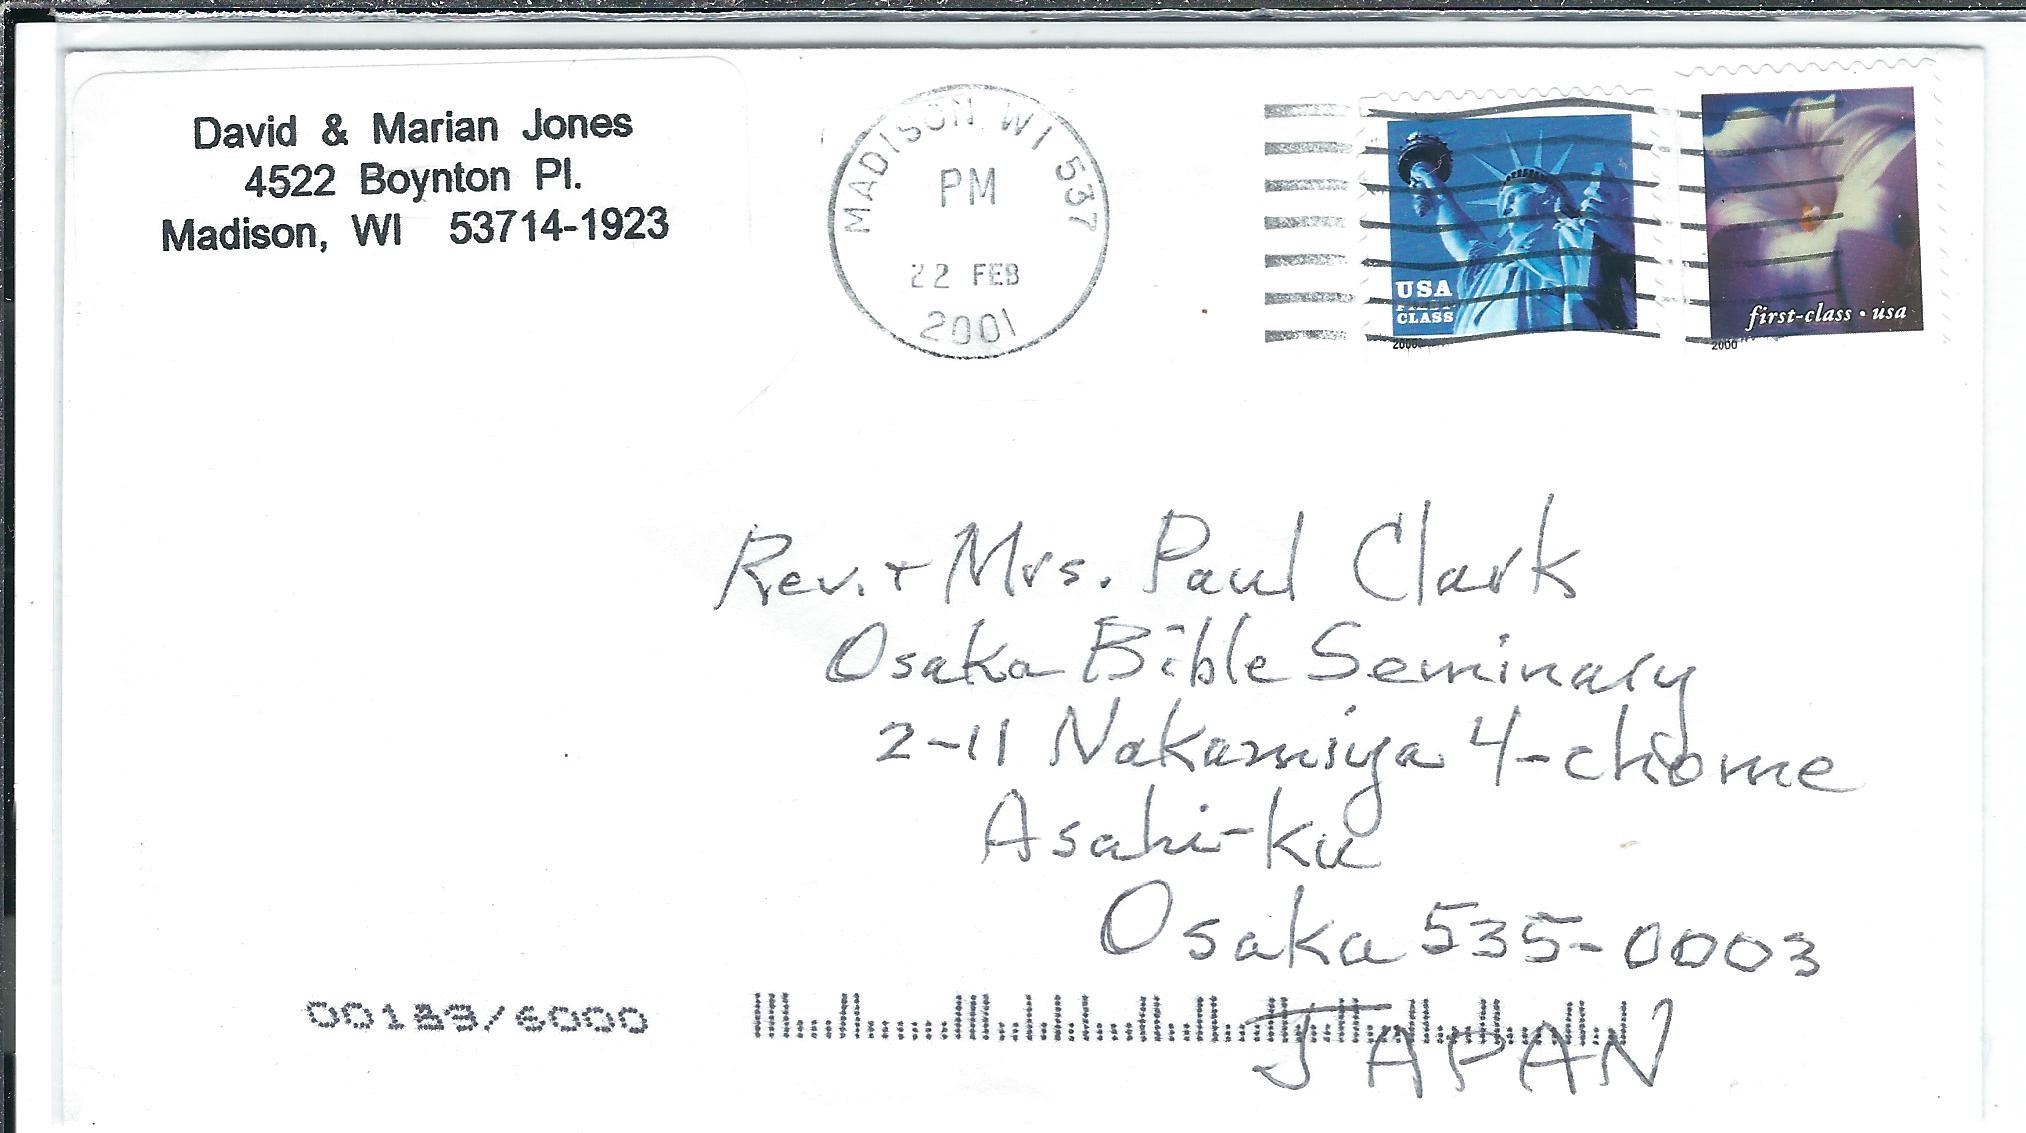 David & Marian Jones
4522 Boynton Pl.
Madison, WI 53714-1923
MADISON WI 537
PM
22 FEB
2001
USA
FIRST
CLASS
2000
first-class • usa
2000
Rev. + Mrs. Paul Clark
Osaka Bible Seminary
2-11 Nakamiya 4-chome
Asahi-ku
Osaka 535-0003
JAPAN
/6000